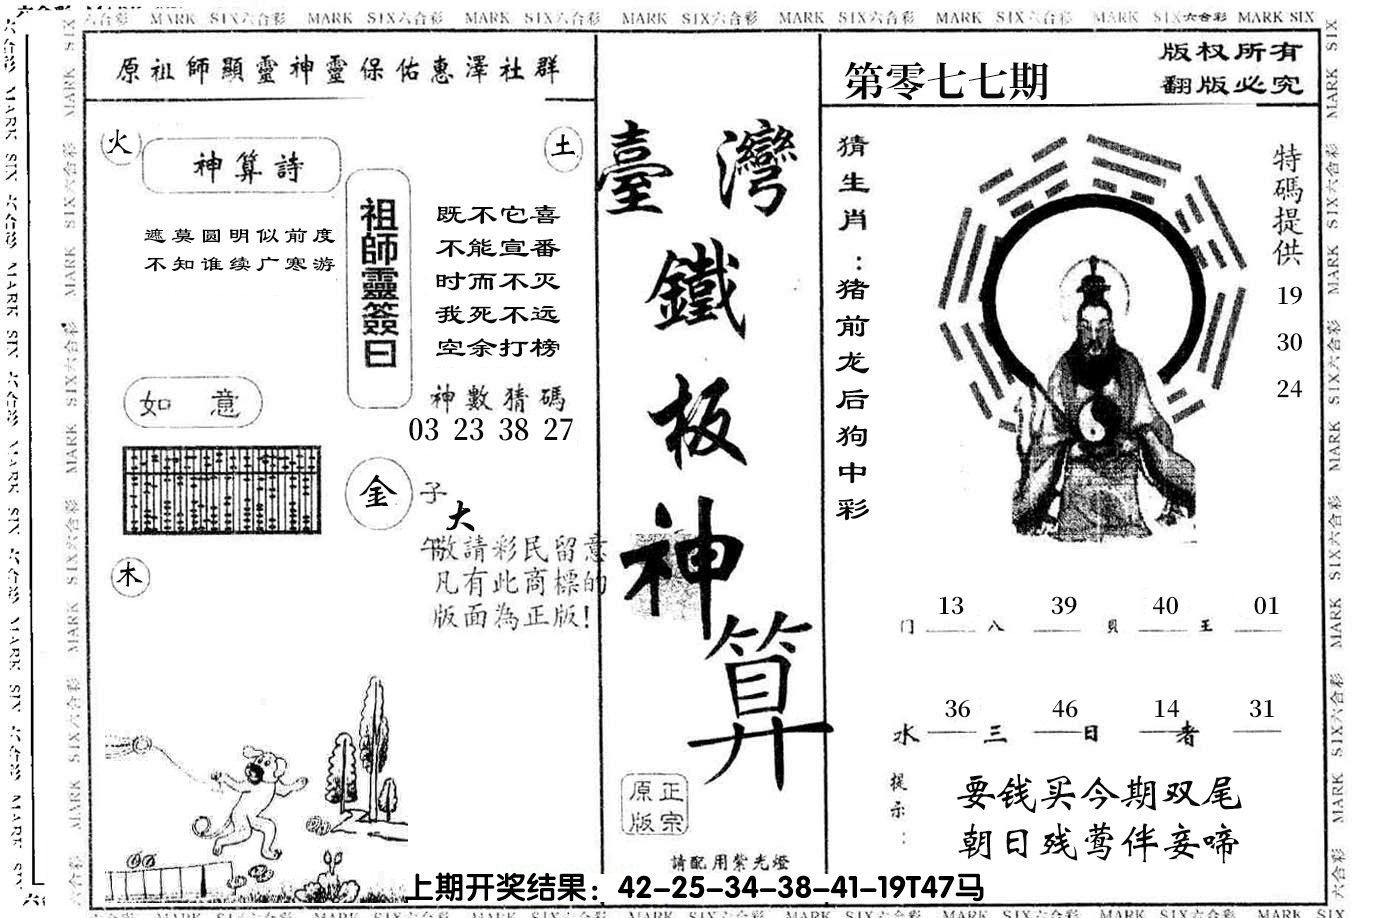 MARK SIX六合彩 MARK SIX六合彩 MARK SIX六合彩 MARK SIX六合彩 MARK SIX六合彩 MARK SIX六合彩 MARK SIX六合彩 MARK SIX
原祖師顯靈神靈保佑惠澤社群
火
神算詩
土
遮莫圆明似前度
不知谁续广寒游
祖師靈簽曰
既不它喜
不能宣番
时而不灭
我死不远
空余打榜
如意
神數猜碼
03 23 38 27
金
子
大
午
敬請彩民留意
凡有此商標的
版面為正版!
木
臺灣
鐵
板
神
算
正宗
原版
請配用紫光燈
第零七七期
版权所有
翻版必究
猜生肖:猪前龙后狗中彩
特碼提供
19
30
24
13 39 40 01
门 八 貝 王
36 46 14 31
水 三 日 者
提示:
要钱买今期双尾
朝日残莺伴妾啼
上期开奖结果：42-25-34-38-41-19T47马